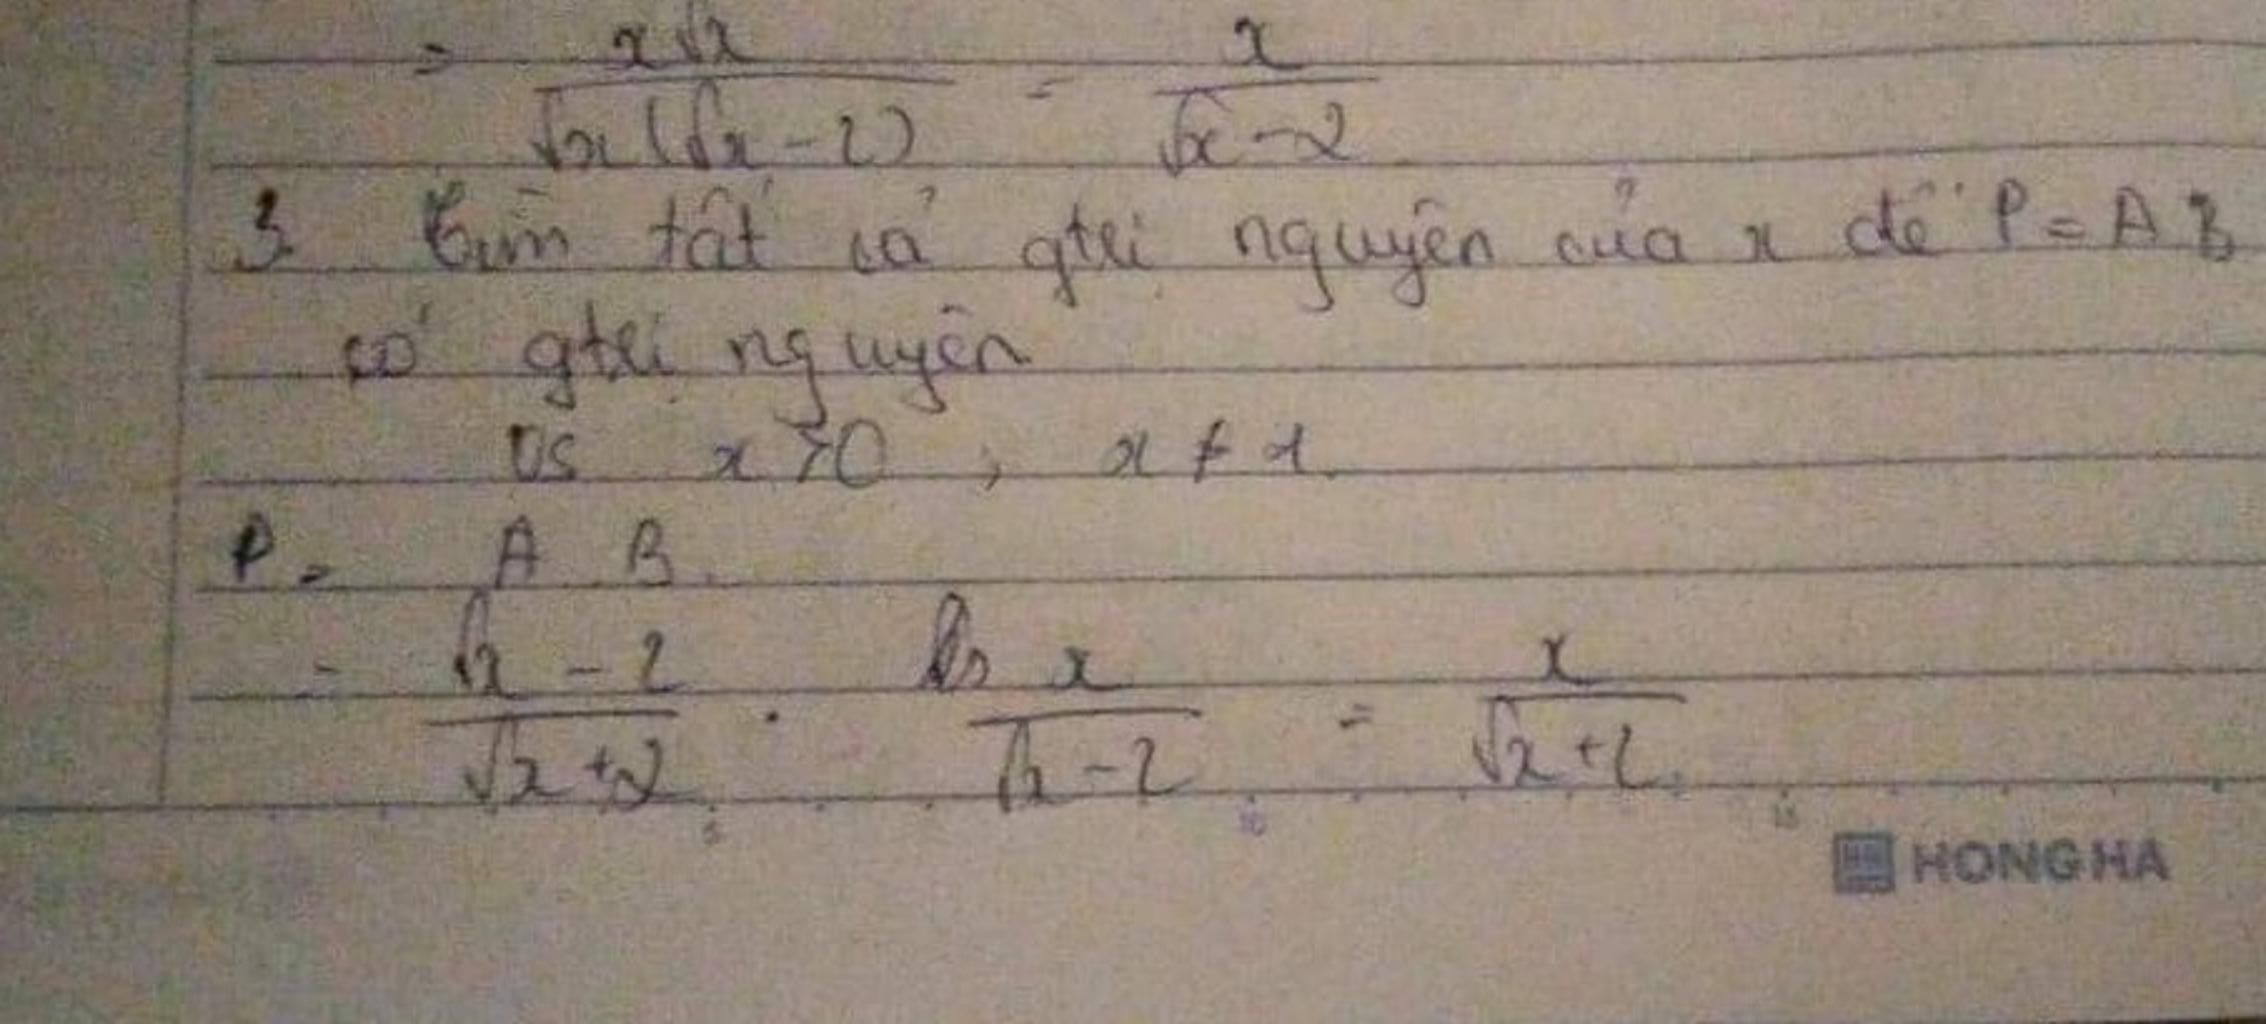 = x√x / √x(√x - 2) = x / √x - 2
3. Tìm tất cả gtrị nguyên của x để P = A B
có gtrị nguyên
x > 0 , x ≠ 1
P = A B
= √x - 2 / √x + 2 . x / √x - 2 = x / √x + 2
5 10 15
HONG HA